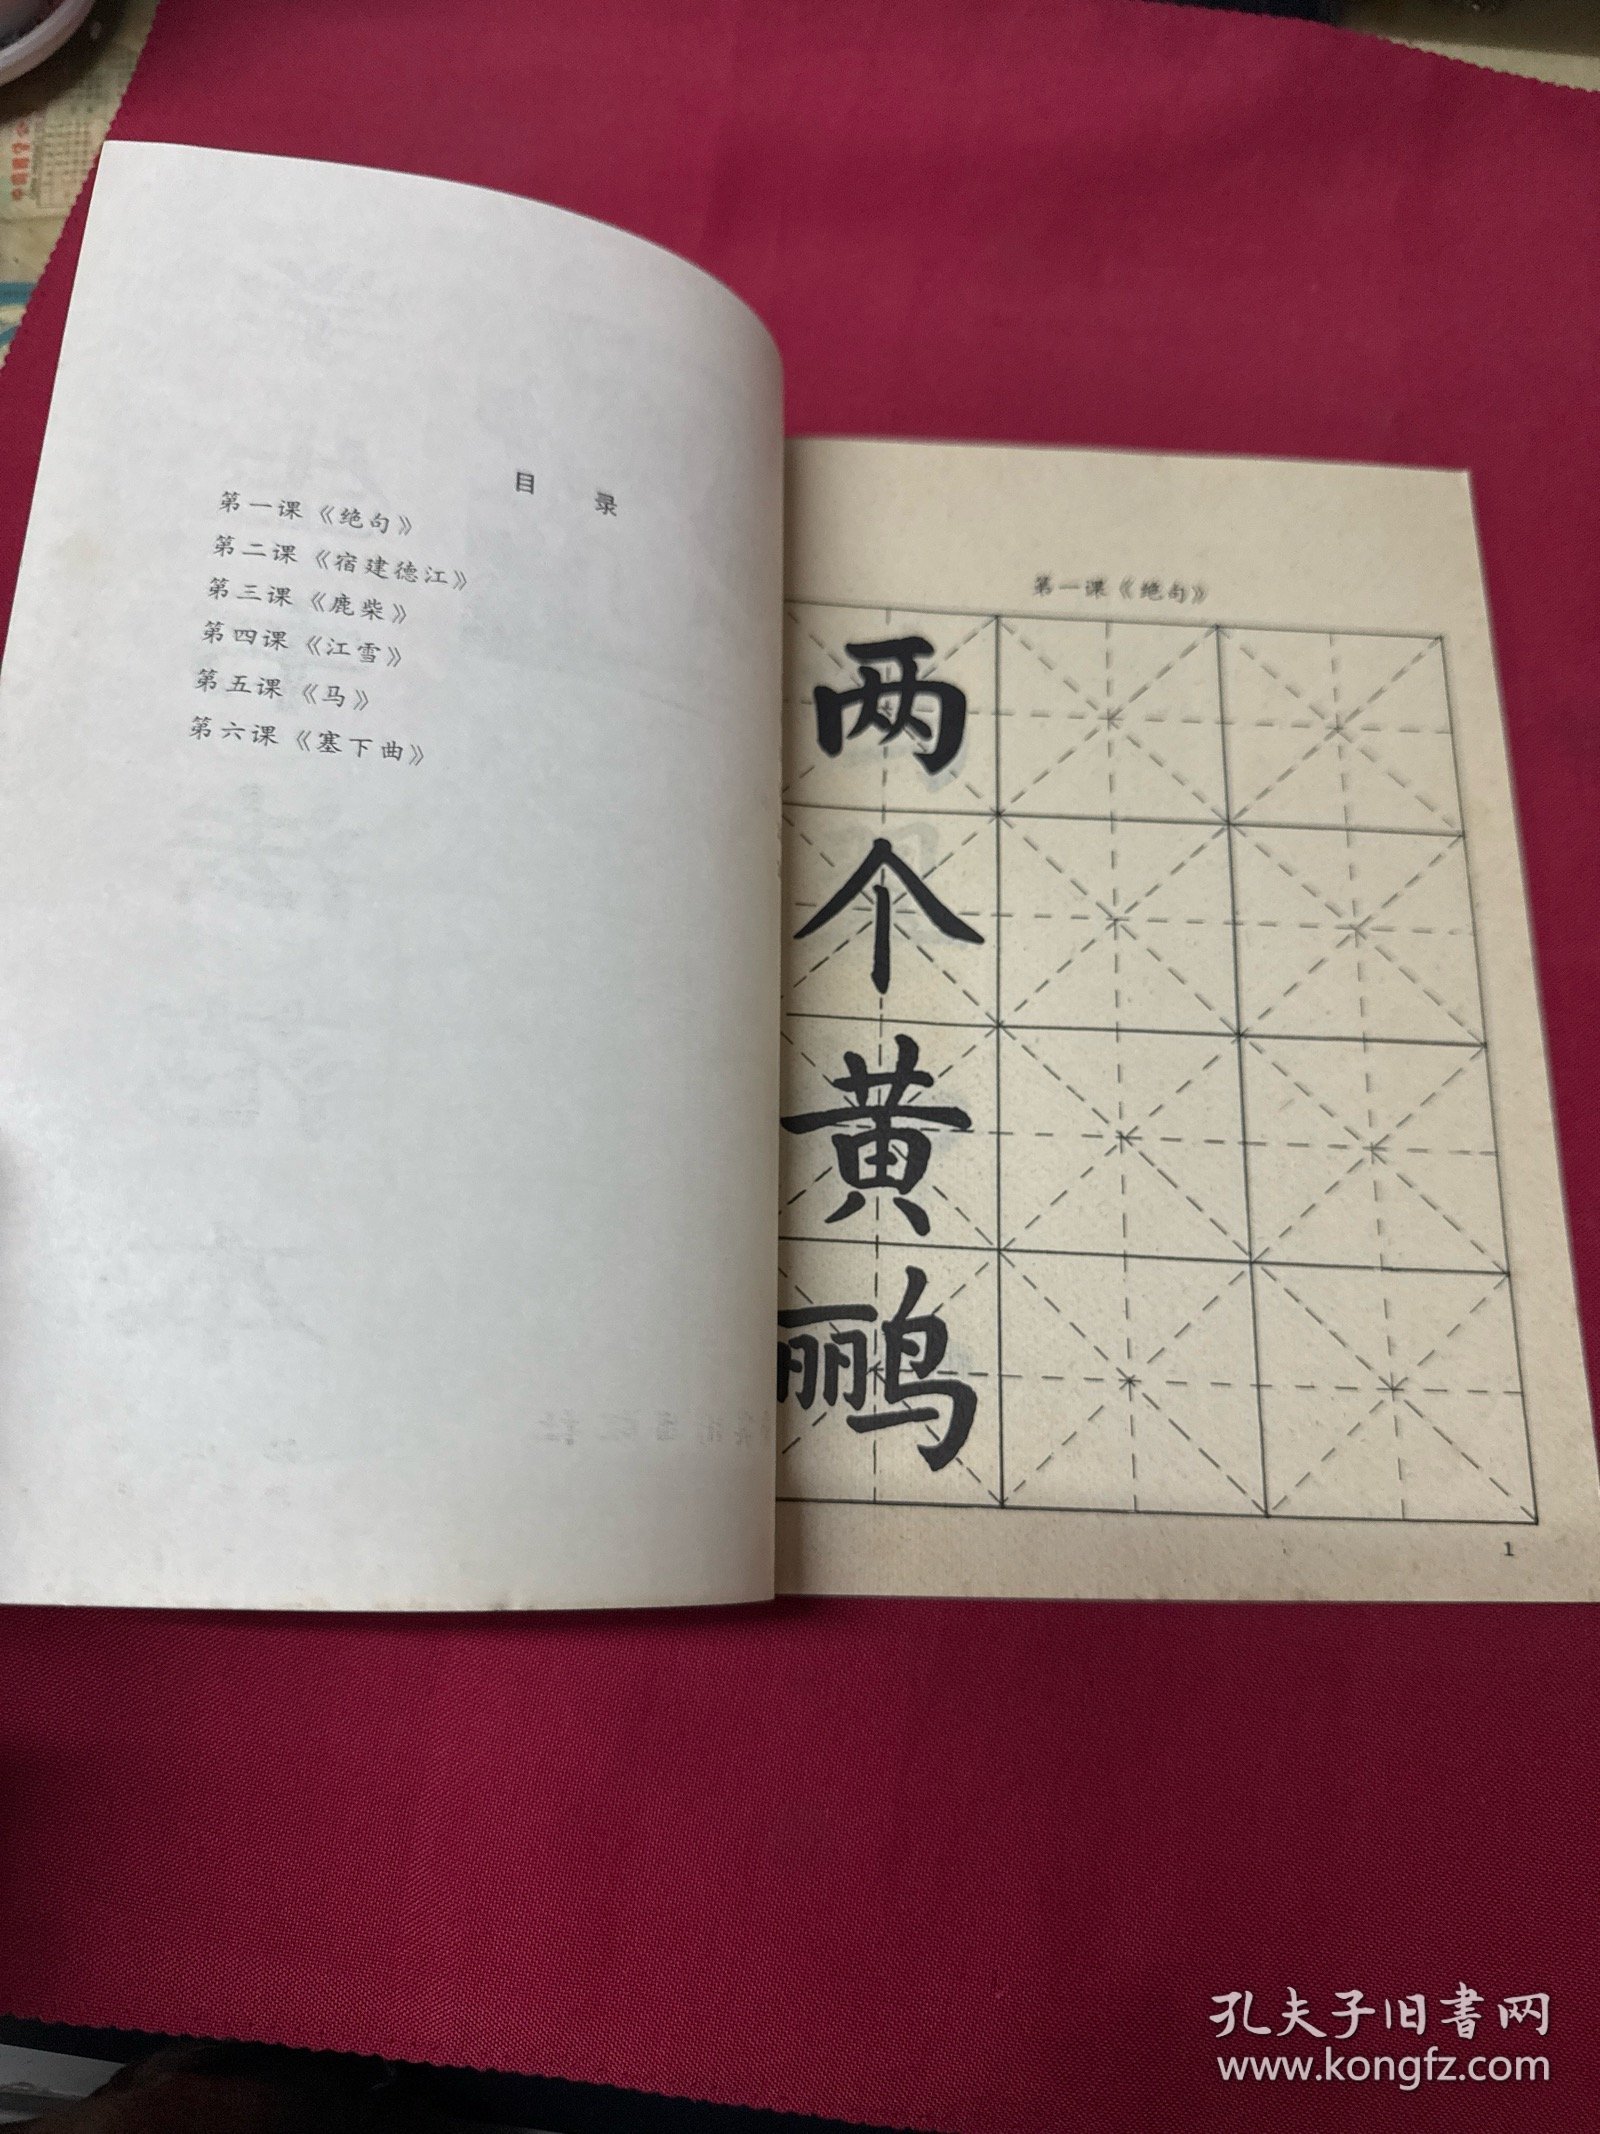 目 录
第一课《绝句》
第二课《宿建德江》
第三课《鹿柴》
第四课《江雪》
第五课《马》
第六课《塞下曲》
第一课《绝句》
两
个
黄
鹂
1
孔夫子旧书网
www.kongfz.com